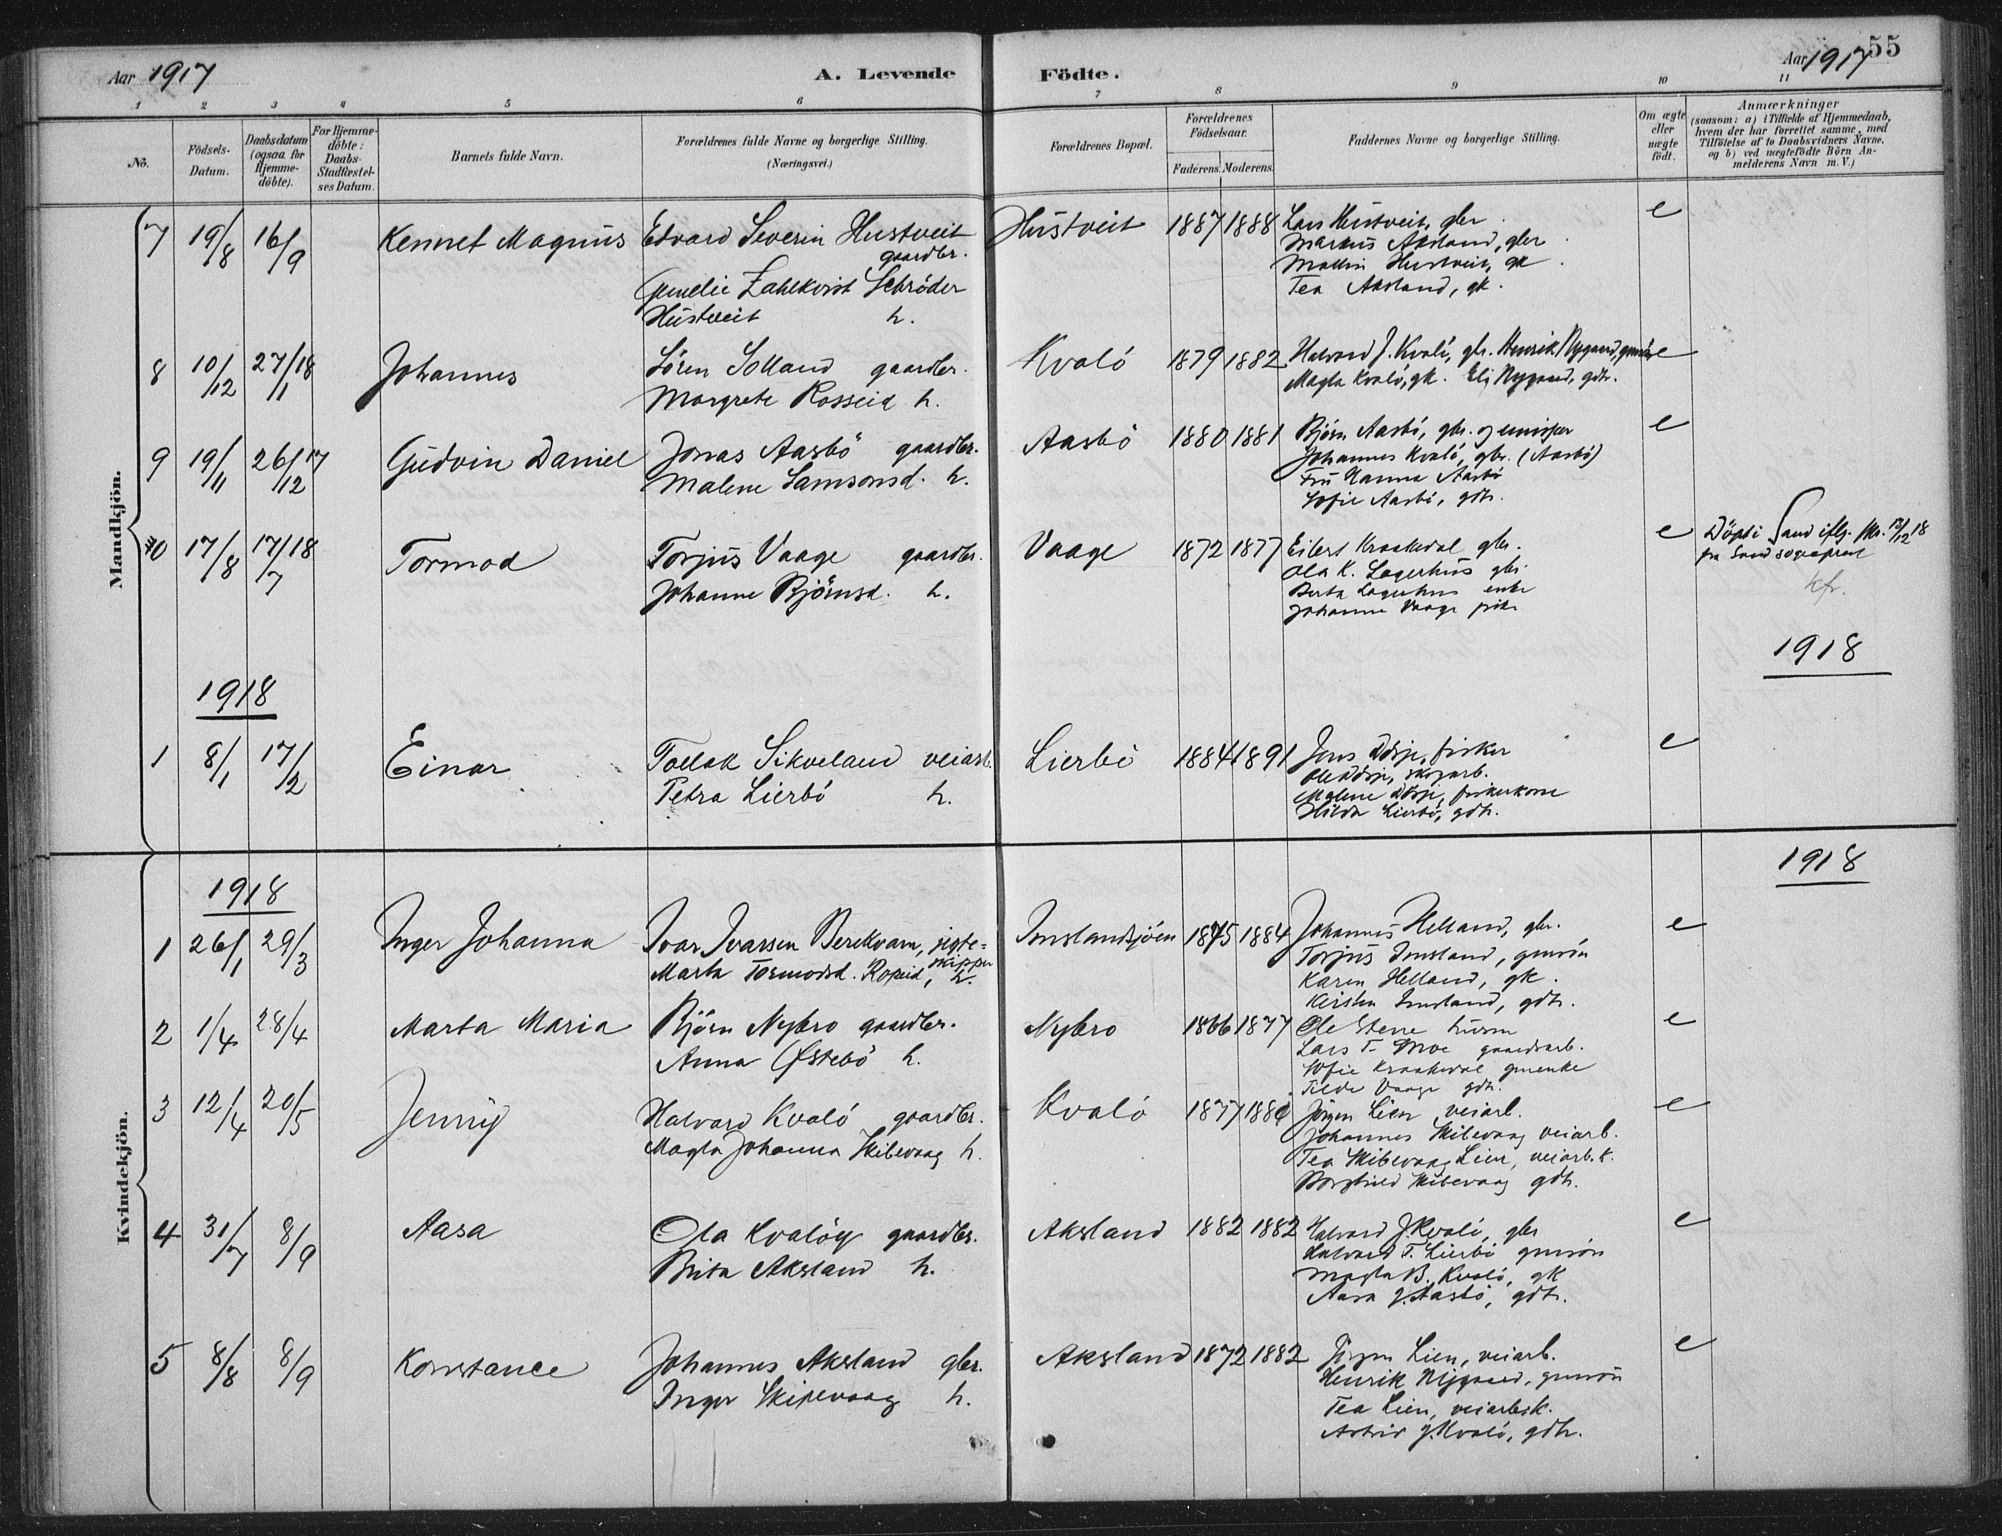 Aar 1917
A. Levende
Födte.
Aar 1917
55
1 2 3 4 5 6 7 8 9 10 11
No.
Födsels-Datum.
Daabsdatum (ogsaa for Hjemme-döbte).
For Hjemme-döbte: Daabs-Stadfæstelses Datum.
Barnets fulde Navn.
Forældrenes fulde Navne og borgerlige Stilling.
(Næringsvei.)
Forældrenes Bopæl.
Forældrenes Födselsaar.
Faderens. Moderens.
Faddernes Navne og borgerlige Stilling.
Om ægte eller uægte født.
Anmærkninger
(saasom: a) i Tilfælde af Hjemmedaab,
hvem der har forrettet samme, med
Tilföielse af to Daabsvidners Navne.
og b) ved uægtefödte Börn An-
melderens Navn m. V.)
Mandkjön.
7 19/8 16/9 Kennet Magnus Edvard Severin Hustveit Hustveit 1887 1888 Lars Hustveit, gbr. e
gaardbr. Markus Aksland, gbr
Zahlkvist Schrøder Hustveit, gk.
Hustveit h. Tea Aksland, gk.
8 10/12 27/1 18 Johannes Sören Solland gaardbr. Kvalö 1879 1882 Halvard J. Kvalö, gbr. Henrik Nygaard, e
Margrete Rosseid h. Magla Kvalö, gk. Nygaard, gdtr.
9 19/11 26/12 17 Gudvin Daniel Jonas Aasbö gaardbr. Aasbö 1880 1881 Björn Aasbö, gbr. og e
Malene Samsonsd. h. Johannes Kvalö, gbr. (Aasbö)
Fru Hanna Aasbö
Sofie Aasbö, gdtr.
10 17/8 17/7 18 Tormod Torjus Vaage gaardbr. Vaage 1872 1877 Eilert Kraakedal gbr. e Döpt i Sand iflg. 12 18
Johanne Björnsd. h. Ola K. Lagerhus gbr. fra Sand sogneprest
Berta Lagerhus enke kfr.
Johanne Vaage pike
1918
1918
1 8/1 17/2 Einar Tollak Sikveland veiarb. Lierbö 1884 1891 Jens fisker e
Petra Lierbö h. skogarb.
Malene fiskerkone
Hilda Lierbö, gdtr.
Kvindekjön.
1918
1918
1 26/1 29/3 Inger Johanna Ivar Ivarsen Berekvam, jegte- 1875 1884 Johannes Helland, gbr. e
skipper Torjus Imsland, gmsön
Marta Tormodsd. Ropeid, h. Karen Helland, gk.
Kirsten Imsland, gdtr.
2 1/4 28/4 Marta Maria Björn Nybro gaardbr. Nybro 1866 1877 Ole Stene husm e
Anna Østebö h. Lars T. Moe gaardsarb.
Sofie Kraakedal gmenke
Tilde Vaage gdtr.
3 12/4 20/5 Jenny Halvard Kvalö gaardbr. Kvalö 1877 Jörgen Lien veiarb. e
Magla Johanna Skibevaag h. Johannes Skibevaag veiarb.
Tea Skibevaag Lien, veiarb.k.
Borghild Skibevaag gdtr.
4 31/7 8/9 Aasa Ola Kvalöy gaardbr. Aksland 1882 1882 Halvard J. Kvalö, gbr e
Brita Aksland h. Halvard T. Lierbö gmsön
Magla B. Kvalö, gk
Aasa J. Aasbö, gdtr.
5 8/8 8/9 Konstance Johannes Aksland gbr. Aksland 1872 1882 Jörgen Lien, veiarb. e
Inger Skipevaag h. Henrik Nygaard, gmsön
Tea Lien, veiarb.k.
Astrid J. Kvalö, gdtr.